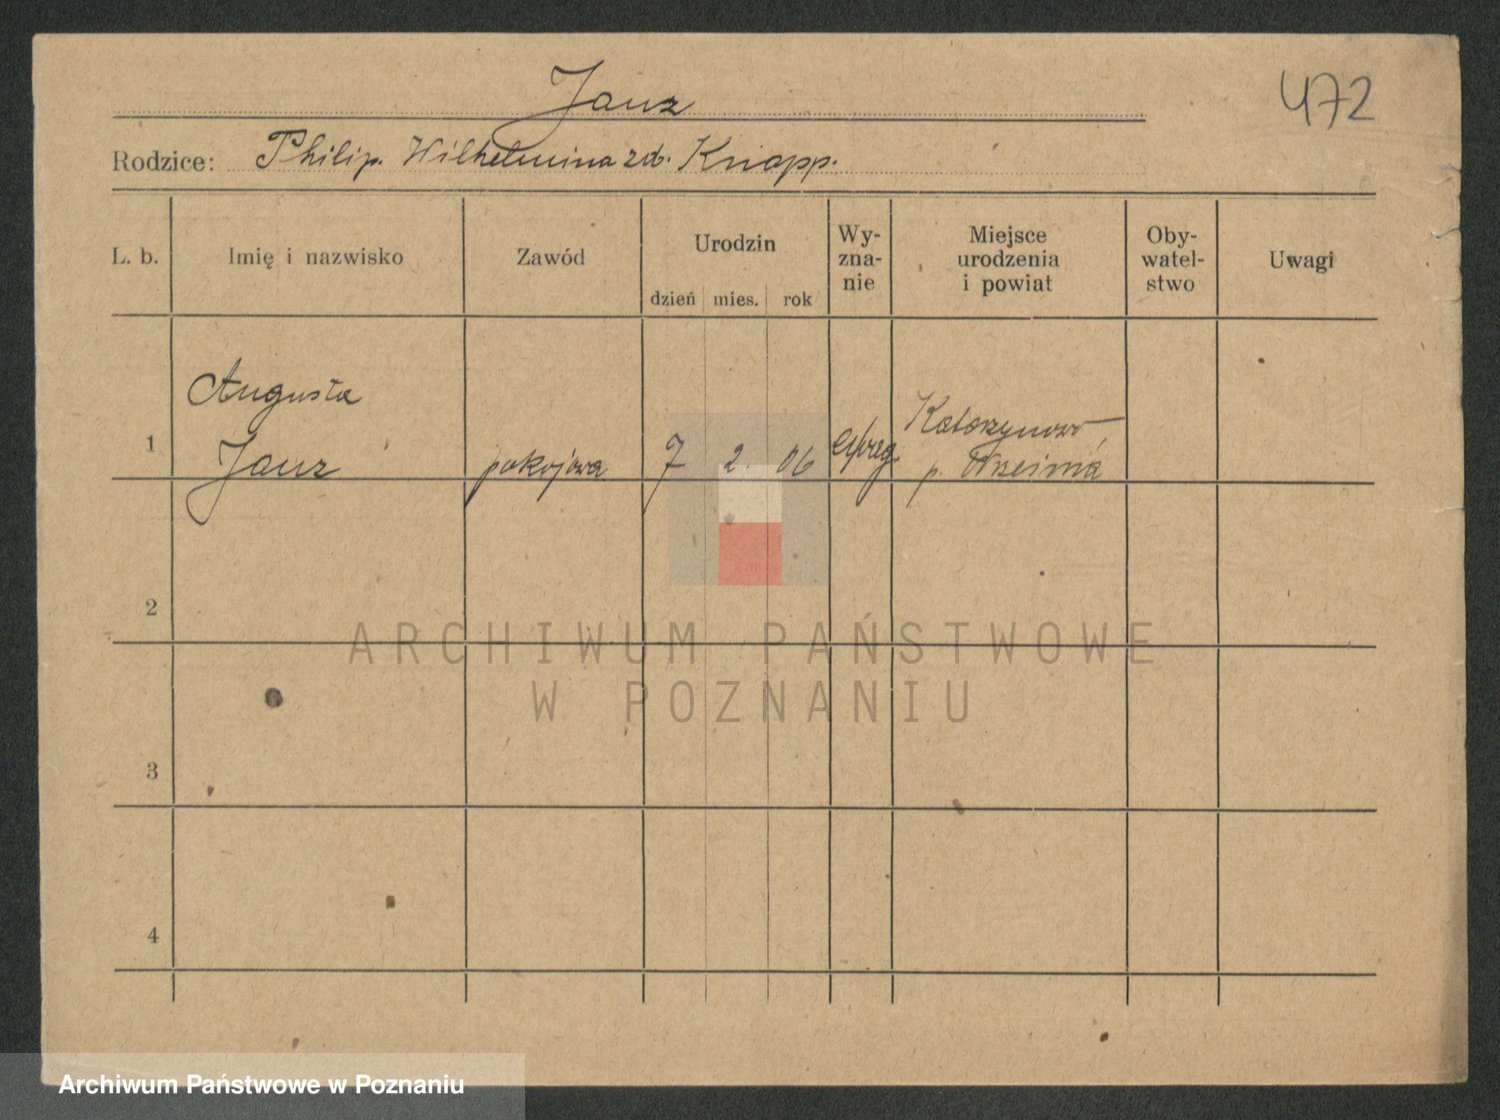 472
Janz
Rodzice: Philip. Wilhelmina zd. Knopp.
L. b.
Imię i nazwisko
Zawód
Urodzin
dzień mies. rok
Wy-
zna-
nie
Miejsce
urodzenia
i powiat
Oby-
watel-
stwo
Uwagi
1
Augusta
Janz
pokojowa
7 2. 06
Katarzynowo
p. Września
2
3
4
ARCHIWUM PAŃSTWOWE
W POZNANIU
Archiwum Państwowe w Poznaniu